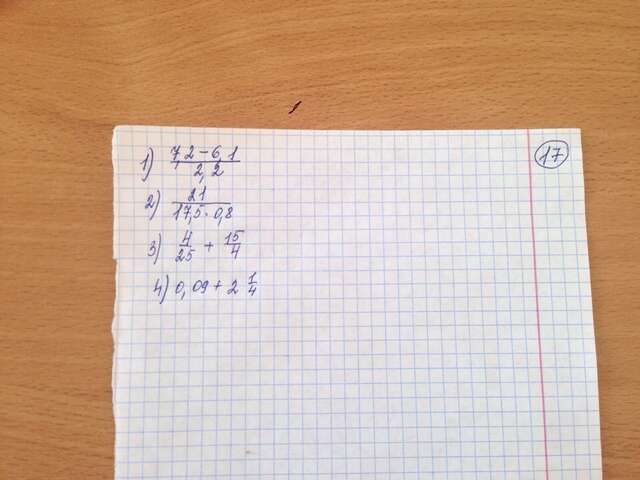 17
1) (7,2 − 6,1)/2,2
2) 21/(17,5 · 0,8)
3) 4/25 + 15/4
4) 0,09 + 2 1/4